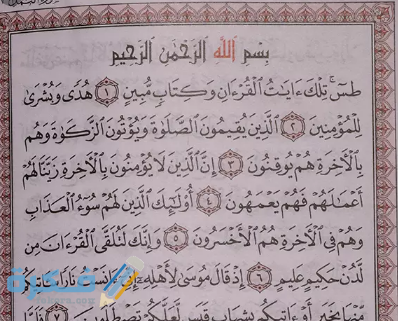 بِسْمِ ٱللَّهِ ٱلرَّحْمَٰنِ ٱلرَّحِيمِ
طسٓۚ تِلْكَ ءَايَٰتُ ٱلْقُرْءَانِ وَكِتَابٍ مُّبِينٍ ١ هُدًى وَبُشْرَىٰ
لِلْمُؤْمِنِينَ ٢ ٱلَّذِينَ يُقِيمُونَ ٱلصَّلَوٰةَ وَيُؤْتُونَ ٱلزَّكَوٰةَ وَهُم
بِٱلْءَاخِرَةِ هُمْ يُوقِنُونَ ٣ إِنَّ ٱلَّذِينَ لَا يُؤْمِنُونَ بِٱلْءَاخِرَةِ زَيَّنَّا لَهُمْ
أَعْمَٰلَهُمْ فَهُمْ يَعْمَهُونَ ٤ أُو۟لَٰٓئِكَ ٱلَّذِينَ لَهُمْ سُوٓءُ ٱلْعَذَابِ
وَهُمْ فِى ٱلْءَاخِرَةِ هُمُ ٱلْأَخْسَرُونَ ٥ وَإِنَّكَ لَتُلَقَّى ٱلْقُرْءَانَ مِن
لَّدُنْ حَكِيمٍ عَلِيمٍ ٦ إِذْ قَالَ مُوسَىٰ لِأَهْلِهِۦٓ إِنِّىٓ ءَانَسْتُ نَارًا سَـَٔاتِيكُم
مِّنْهَا بِخَبَرٍ أَوْ ءَاتِيكُم بِشِهَابٍ قَبَسٍ لَّعَلَّكُمْ تَصْطَلُونَ ٧ فَلَمَّا
فكرة